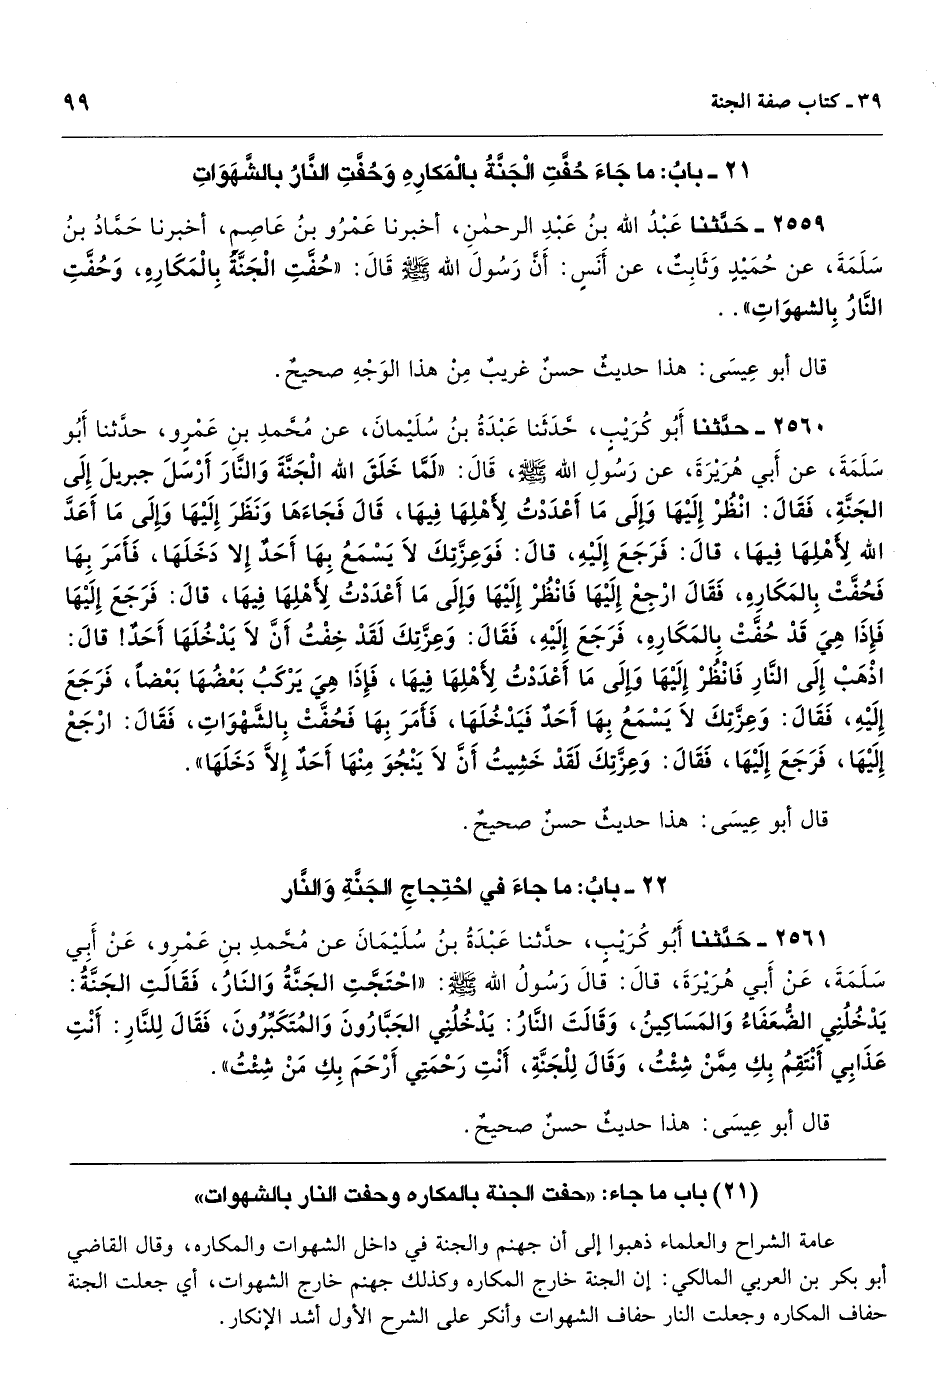 ٣٩ ـ كتاب صفة الجنة ٩٩
٢١ ـ بابُ: ما جَاءَ حُفَّتِ الْجَنَّةُ بالْمَكارِهِ وَحُفَّتِ النَّارُ بالشَّهَوَاتِ
٢٥٥٩ ـ حَدَّثنا عَبْدُ الله بنُ عَبْدِ الرحمٰنِ، أخبرنا عَمْرُو بنُ عَاصِمٍ، أخبرنا حَمَّادُ بنُ
سَلَمَةَ، عن حُمَيْدٍ وَثَابِتٌ، عن أَنَسٍ: أنَّ رَسُولَ الله ﷺ قَالَ: «حُفَّتِ الْجَنَّةُ بِالْمَكَارِهِ، وَحُفَّتِ
النَّارُ بِالشهوَاتِ». .
قال أبو عِيسَى: هذا حديثٌ حسنٌ غريبٌ مِنْ هذا الوَجْهِ صحيحٌ.
٢٥٦٠ ـ حدَّثنا أَبُو كُرَيْبٍ، حَّدَثَنا عَبْدَةُ بنُ سُلَيْمانَ، عن مُحَّمدِ بنِ عَمْرٍو، حدَّثنا أَبُو
سَلَمَةَ، عن أبي هُرَيْرَةَ، عن رَسُولِ الله ﷺ، قَالَ: «لَمَّا خَلَقَ الله الْجَنَّةَ وَالنَّارَ أَرْسَلَ جبريلَ إِلَى
الجَنَّةِ، فَقَالَ: انْظُرْ إِلَيْهَا وَإِلَى مَا أَعْدَدْتُ لِأَهْلِهَا فِيهَا، قَالَ فَجَاءَهَا وَنَظَرَ إِلَيْهَا وَإِلَى مَا أَعَدَّ
الله لِأَهْلِهَا فِيهَا، قالَ: فَرَجَعَ إِلَيْهِ، قالَ: فَوَعِزَّتِكَ لاَ يَسْمَعُ بِهَا أَحَدٌ إلا دَخَلَهَا، فَأَمَرَ بِهَا
فَحُفَّتْ بِالمَكارِهِ، فَقَالَ ارْجِعْ إِلَيْهَا فَانْظُرْ إِلَيْهَا وَإِلَى مَا أَعْدَدْتُ لِأَهْلِهَا فِيهَا، قالَ: فَرَجَعَ إِلَيْهَا
فَإِذَا هِيَ قَدْ حُفَّتْ بِالمَكارِهِ، فَرَجَعَ إِلَيْهِ، فَقَالَ: وَعِزَّتِكَ لَقَدْ خِفْتُ أَنَّ لاَ يَدْخُلَهَا أَحَدٌ! قالَ:
اذْهَبْ إِلَى النَّارِ فَانْظُرْ إِلَيْهَا وَإِلَى مَا أَعْدَدْتُ لِأَهْلِهَا فِيهَا، فَإِذَا هِيَ يَرْكَبُ بَعْضُهَا بَعْضاً، فَرَجَعَ
إِلَيْهِ، فَقَالَ: وَعِزَّتِكَ لاَ يَسْمَعُ بِهَا أَحَدٌ فَيَدْخُلَهَا، فَأَمَرَ بِهَا فَحُفَّتْ بِالشَّهْوَاتِ، فَقَالَ: ارْجَعْ
إِلَيْهَا، فَرَجَعَ إِلَيْهَا، فَقَالَ: وَعِزَّتِكَ لَقَدْ خَشِيتُ أَنَّ لاَ يَنْجُوَ مِنْهَا أَحَدٌ إِلاَّ دَخَلَهَا».
قال أبو عِيسَى: هذا حديثٌ حسنٌ صحيحٌ.
٢٢ ـ بابُ: ما جاءَ في احْتِجاجِ الجَنَّةِ وَالنَّار
٢٥٦١ ـ حَدَّثنا أَبُو كُرَيْبٍ، حدَّثنا عَبْدَةُ بنُ سُلَيْمَانَ عن مُحَّمدِ بنِ عَمْرٍو، عَنْ أَبي
سَلَمَةَ، عَنْ أبي هُرَيْرَةَ، قالَ: قالَ رَسُولُ الله ﷺ: «احْتَجَّتِ الجَنَّةُ وَالنَارُ، فَقَالَتِ الجَنَّةُ:
يَدْخُلُنِي الضُّعَفَاءُ وَالمَسَاكِينُ، وَقَالَتَ النَّارُ: يَدْخُلُنِي الجَبَّارُونَ وَالمُتَكَبِّرُونَ، فَقَالَ لِلنَّارِ: أَنْتِ
عَذَابِي أَنْتَقِمُ بِكِ مِمَّنْ شِئْتُ، وَقَالَ لِلْجَنَّةِ، أَنْتِ رَحْمَتِي أَرْحَمَ بِكِ مَنْ شِئْتُ».
قال أبو عِيسَى: هذا حديثٌ حسنٌ صحيحٌ.
(٢١) باب ما جاء: «حفت الجنة بالمكاره وحفت النار بالشهوات»
عامة الشراح والعلماء ذهبوا إلى أن جهنم والجنة في داخل الشهوات والمكاره، وقال القاضي
أبو بكر بن العربي المالكي: إن الجنة خارج المكاره وكذلك جهنم خارج الشهوات، أي جعلت الجنة
حفاف المكاره وجعلت النار حفاف الشهوات وأنكر على الشرح الأول أشد الإنكار.